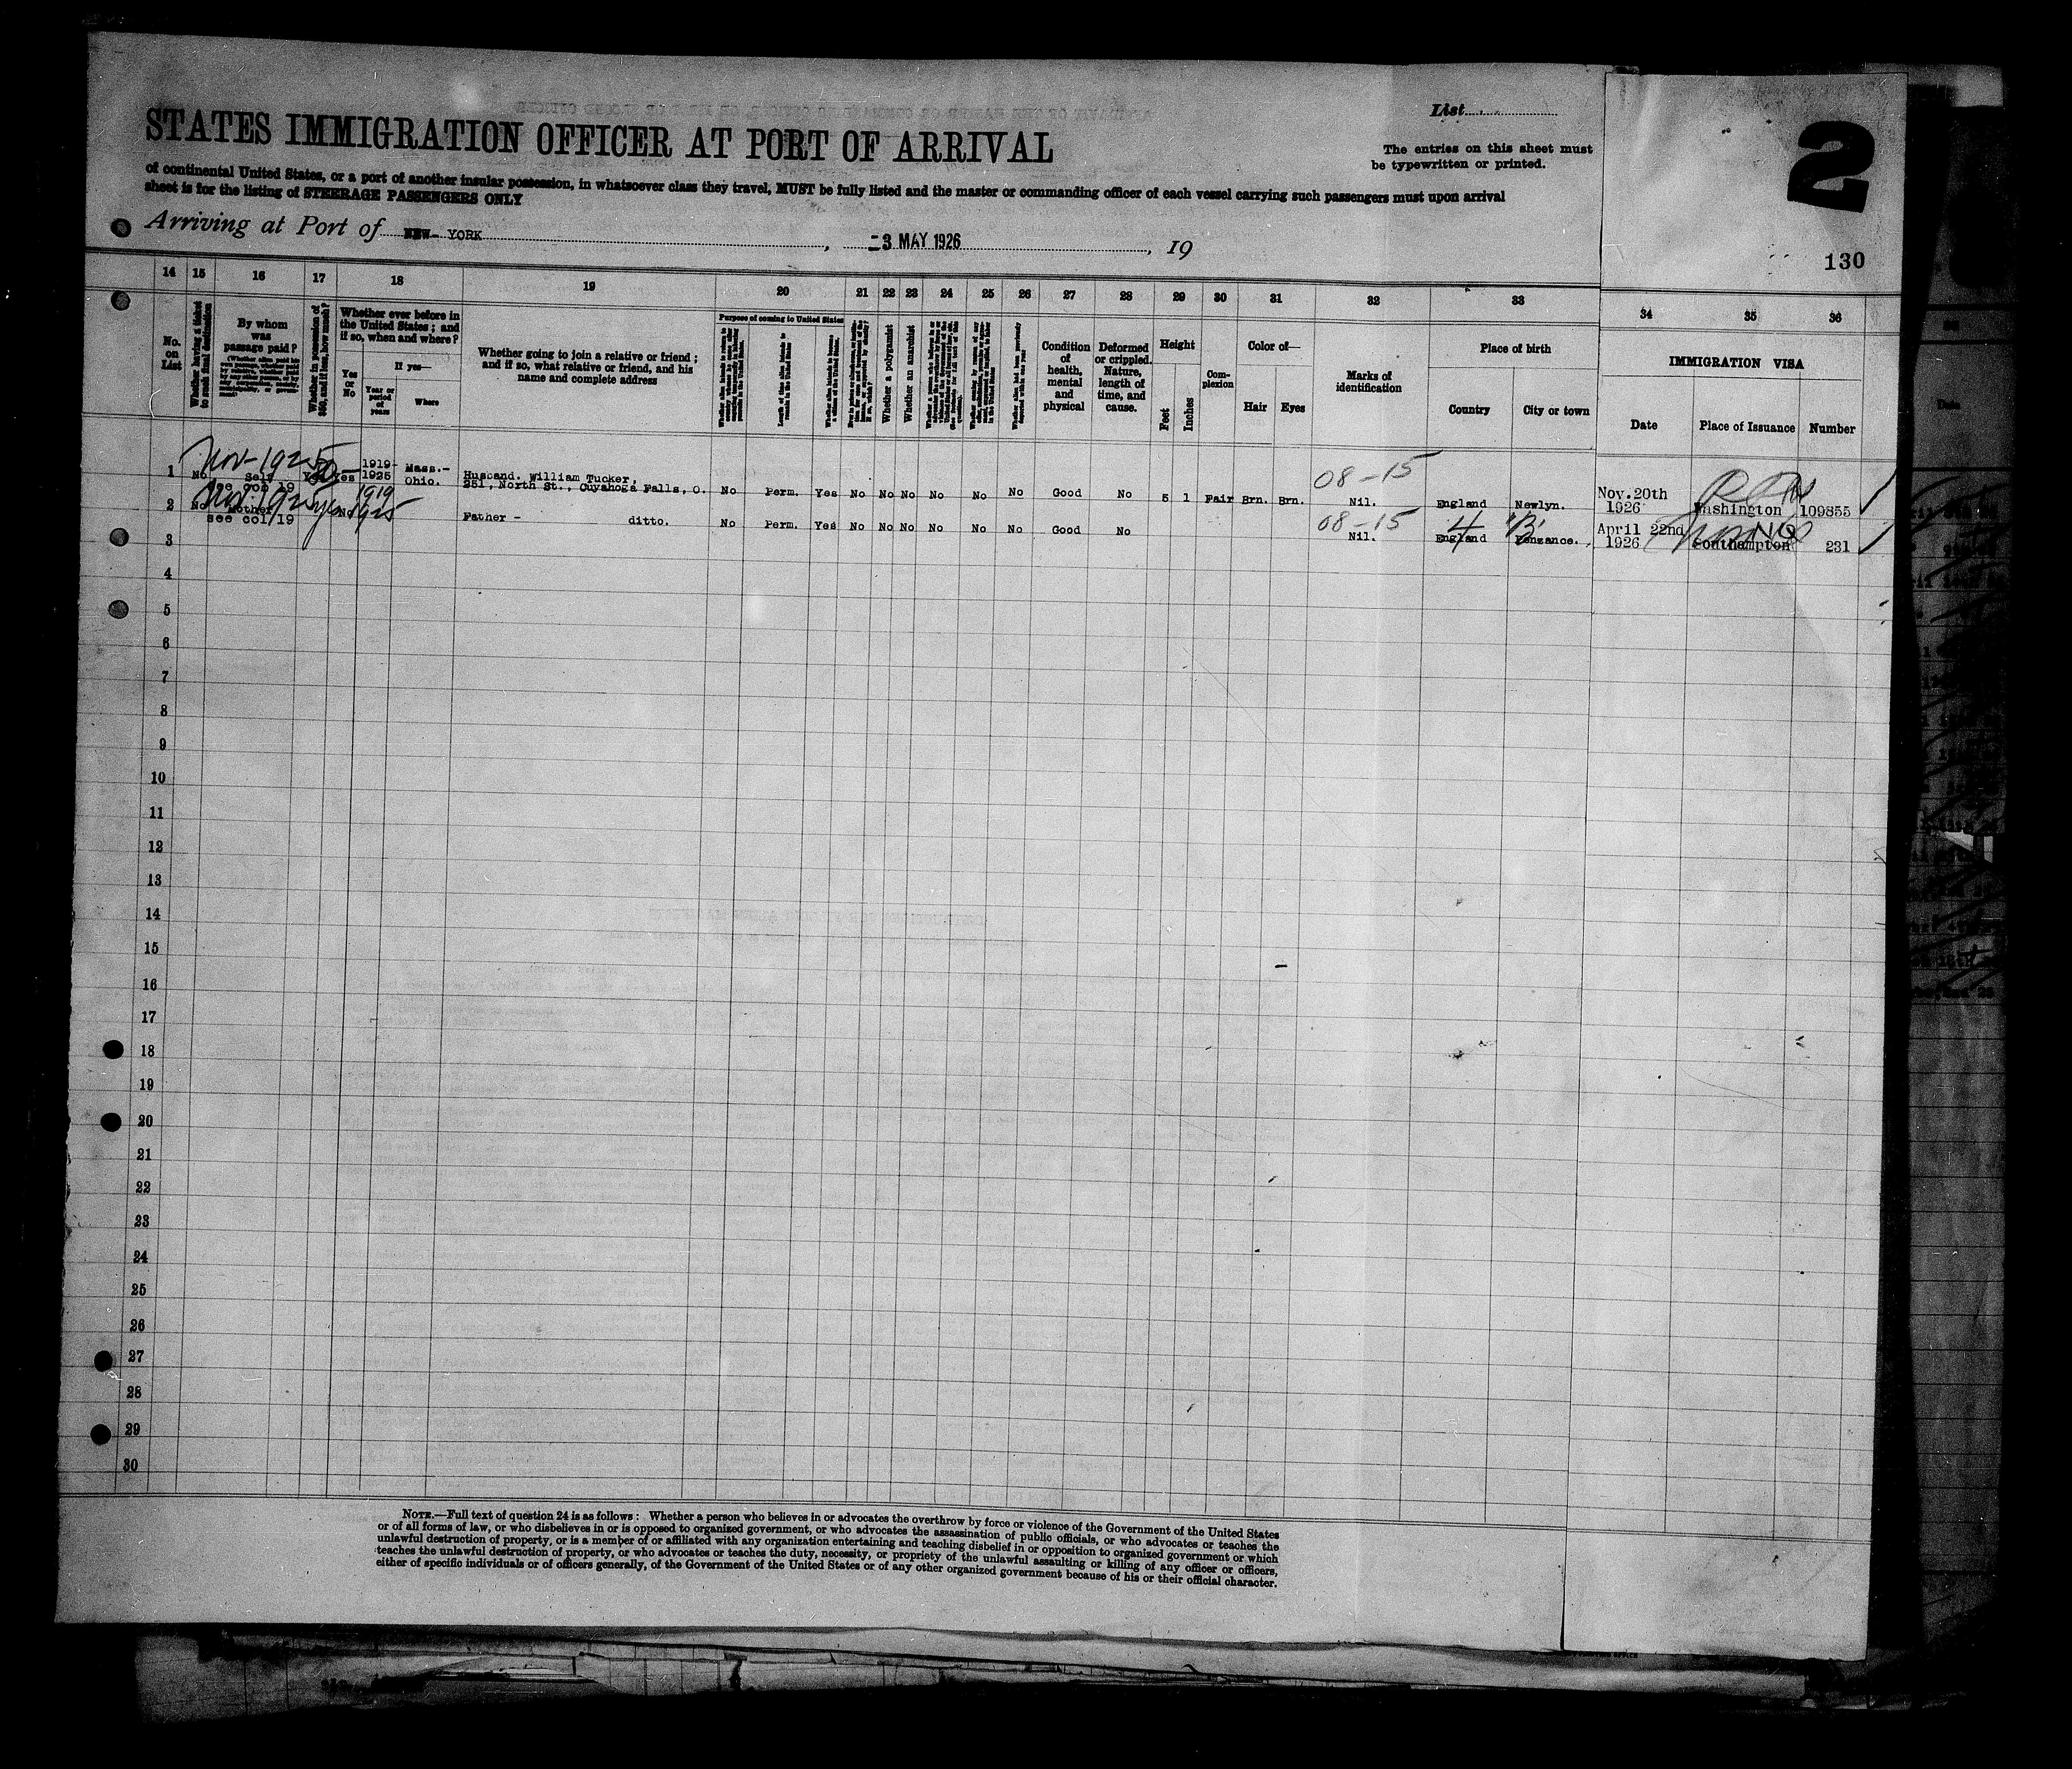 List
2
STATES IMMIGRATION OFFICER AT PORT OF ARRIVAL
The entries on this sheet must
be typewritten or printed.
of continental United States, or a port of another insular possession, in whatsoever class they travel, MUST be fully listed and the master or commanding officer of each vessel carrying such passengers must upon arrival
sheet is for the listing of STEERAGE PASSENGERS ONLY
Arriving at Port of NEW-YORK, -3 MAY 1926, 19
130
14 15 16 17 18 19 20 21 22 23 24 25 26 27 28 29 30 31 32 33 34 35 36
No. on List
Whether having a ticket to such final destination
By whom was passage paid?
Whether in possession of $50, and if less, how much?
Whether ever before in the United States; and if so, when and where?
Yes or No
If yes—
Year or period of years
Where
Whether going to join a relative or friend; and if so, what relative or friend, and his name and complete address
Purpose of coming to United States
Whether a polygamist
Whether an anarchist
Condition of health, mental and physical
Deformed or crippled. Nature, length of time, and cause.
Height
Feet
Inches
Complexion
Color of—
Hair
Eyes
Marks of identification
Place of birth
Country
City or town
IMMIGRATION VISA
Date
Place of Issuance
Number
Nov-1925
1 No Self see col 19 Yes 50 Yes 1919-1925 Mass.-Ohio. Husband, William Tucker, 251, North St., Cuyahoga Falls, O. No Perm. Yes No No No No No No Good No 5 1 Fair Brn. Brn. 08-15 Nil. England Newlyn. Nov.20th 1926 Washington 109855
Nov. 1925 yes 1919 1925
2 No Mother see col/19 No Father - ditto. No Perm. Yes No No No No No No Good No 08-15 Nil. England 4 "B" Penzance. April 22nd 1926 NQ Southampton 231
3
4
5
6
7
8
9
10
11
12
13
14
15
16
17
18
19
20
21
22
23
24
25
26
27
28
29
30
NOTE.—Full text of question 24 is as follows: Whether a person who believes in or advocates the overthrow by force or violence of the Government of the United States
or of all forms of law, or who disbelieves in or is opposed to organized government, or who advocates the assassination of public officials, or who advocates or teaches the
unlawful destruction of property, or is a member of or affiliated with any organization entertaining and teaching disbelief in or opposition to organized government or which
teaches the unlawful destruction of property, or who advocates or teaches the duty, necessity, or propriety of the unlawful assaulting or killing of any officer or officers,
either of specific individuals or of officers generally, of the Government of the United States or of any other organized government because of his or their official character.